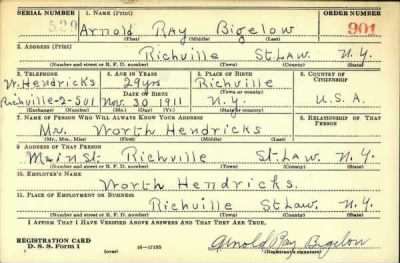 SERIAL NUMBER 1. NAME (Print) ORDER NUMBER
529 Arnold Ray Bigelow 901
(First) (Middle) (Last)
2. ADDRESS (Print)
Richville St.Law. N.Y.
(Number and street or R. F. D. number) (Town) (County) (State)
3. TELEPHONE 4. AGE IN YEARS 5. PLACE OF BIRTH 6. COUNTRY OF CITIZENSHIP
W. Hendricks 29yrs Richville
DATE OF BIRTH (Town or county)
Richville-2-501 Nov. 30 1911 N.Y. U.S.A.
(Exchange) (Number) (Mo.) (Day) (Yr.) (State or country)
7. NAME OF PERSON WHO WILL ALWAYS KNOW YOUR ADDRESS 8. RELATIONSHIP OF THAT PERSON
Mr. Worth Hendricks
(Mr., Mrs., Miss) (First) (Middle) (Last)
9. ADDRESS OF THAT PERSON
Main St. Richville St.Law. N.Y.
(Number and street or R. F. D. number) (Town) (County) (State)
10. EMPLOYER'S NAME
Worth Hendricks.
11. PLACE OF EMPLOYMENT OR BUSINESS
Richville St Law. N.Y.
(Number and street or R. F. D. number) (Town) (County) (State)
I AFFIRM THAT I HAVE VERIFIED ABOVE ANSWERS AND THAT THEY ARE TRUE.
REGISTRATION CARD
D. S. S. Form 1 (over) 16—17105 Arnold Ray Bigelow
(Registrant's signature)